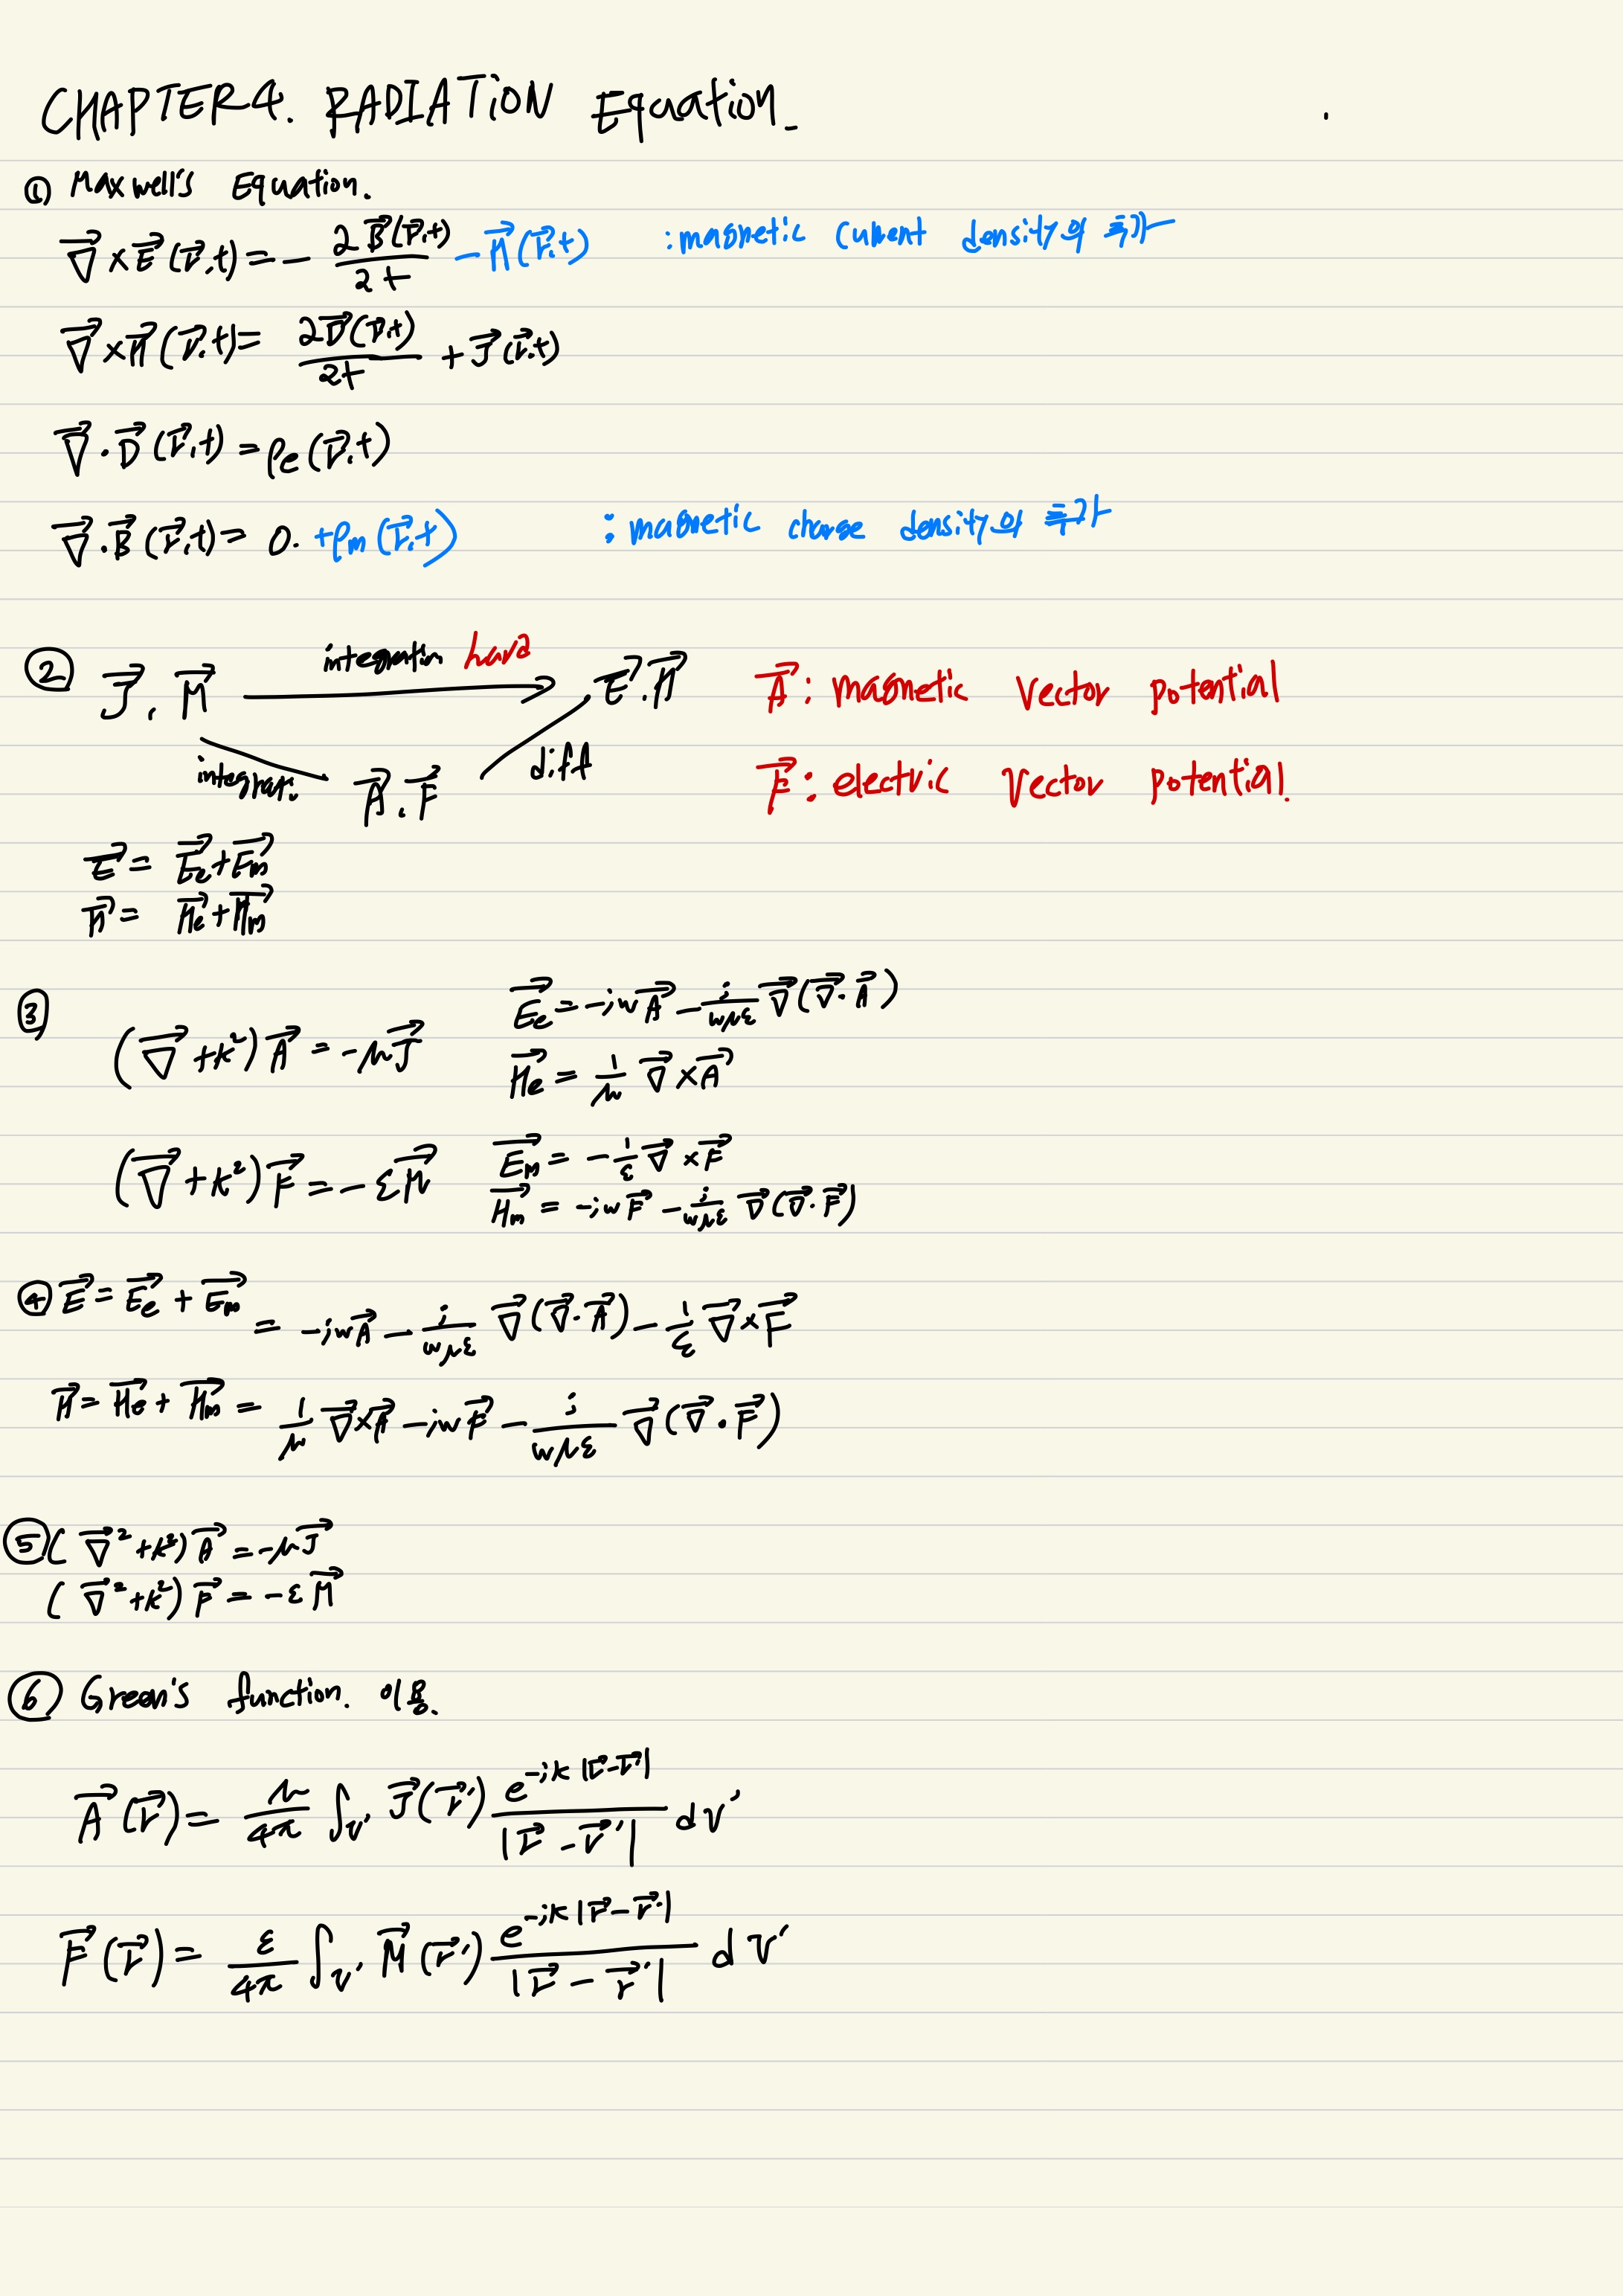 CHAPTER4. RADIATION Equation.
① Maxwell's Equation.
∇⃗ × E⃗(r⃗,t) = - ∂B⃗(r⃗,t)/∂t - M⃗(r⃗,t) : magnetic current density의 추가
∇⃗ × H⃗(r⃗,t) = ∂D⃗(r⃗,t)/∂t + J⃗(r⃗,t)
∇⃗ · D⃗(r⃗,t) = ρe(r⃗,t)
∇⃗ · B⃗(r⃗,t) = 0. + ρm(r⃗,t) : magnetic charge density의 추가
② J⃗, M⃗ integration hard E⃗, H⃗ A⃗ : magnetic Vector potential
integrat. A⃗, F⃗ diff F⃗ : electric Vector potential.
E⃗ = E⃗e + E⃗m
H⃗ = H⃗e + H⃗m
③ (∇⃗ + k²)A⃗ = -μJ⃗ E⃗e = -jωA⃗ - j/ωμε ∇⃗(∇⃗·A⃗)
H⃗e = 1/μ ∇⃗ × A⃗
(∇⃗ + k²)F⃗ = -εM⃗ E⃗m = -1/ε ∇⃗ × F⃗
H⃗m = -jωF⃗ - j/ωμε ∇⃗(∇⃗·F⃗)
④ E⃗ = E⃗e + E⃗m = -jωA⃗ - j/ωμε ∇⃗(∇⃗·A⃗) - 1/ε ∇⃗ × F⃗
H⃗ = H⃗e + H⃗m = 1/μ ∇⃗ × A⃗ - jωF⃗ - j/ωμε ∇⃗(∇⃗·F⃗)
⑤ (∇⃗² + k²)A⃗ = -μJ⃗
(∇⃗² + k²)F⃗ = -εM⃗
⑥ Green's function. 이용.
A⃗(r⃗) = μ/4π ∫v' J⃗(r⃗') e^(-jk|r⃗-r⃗'|)/|r⃗-r⃗'| dv'
F⃗(r⃗) = ε/4π ∫v' M⃗(r⃗') e^(-jk|r⃗-r⃗'|)/|r⃗-r⃗'| dv'